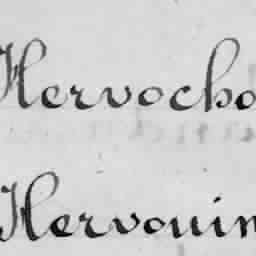 Hervocho
Hervouin